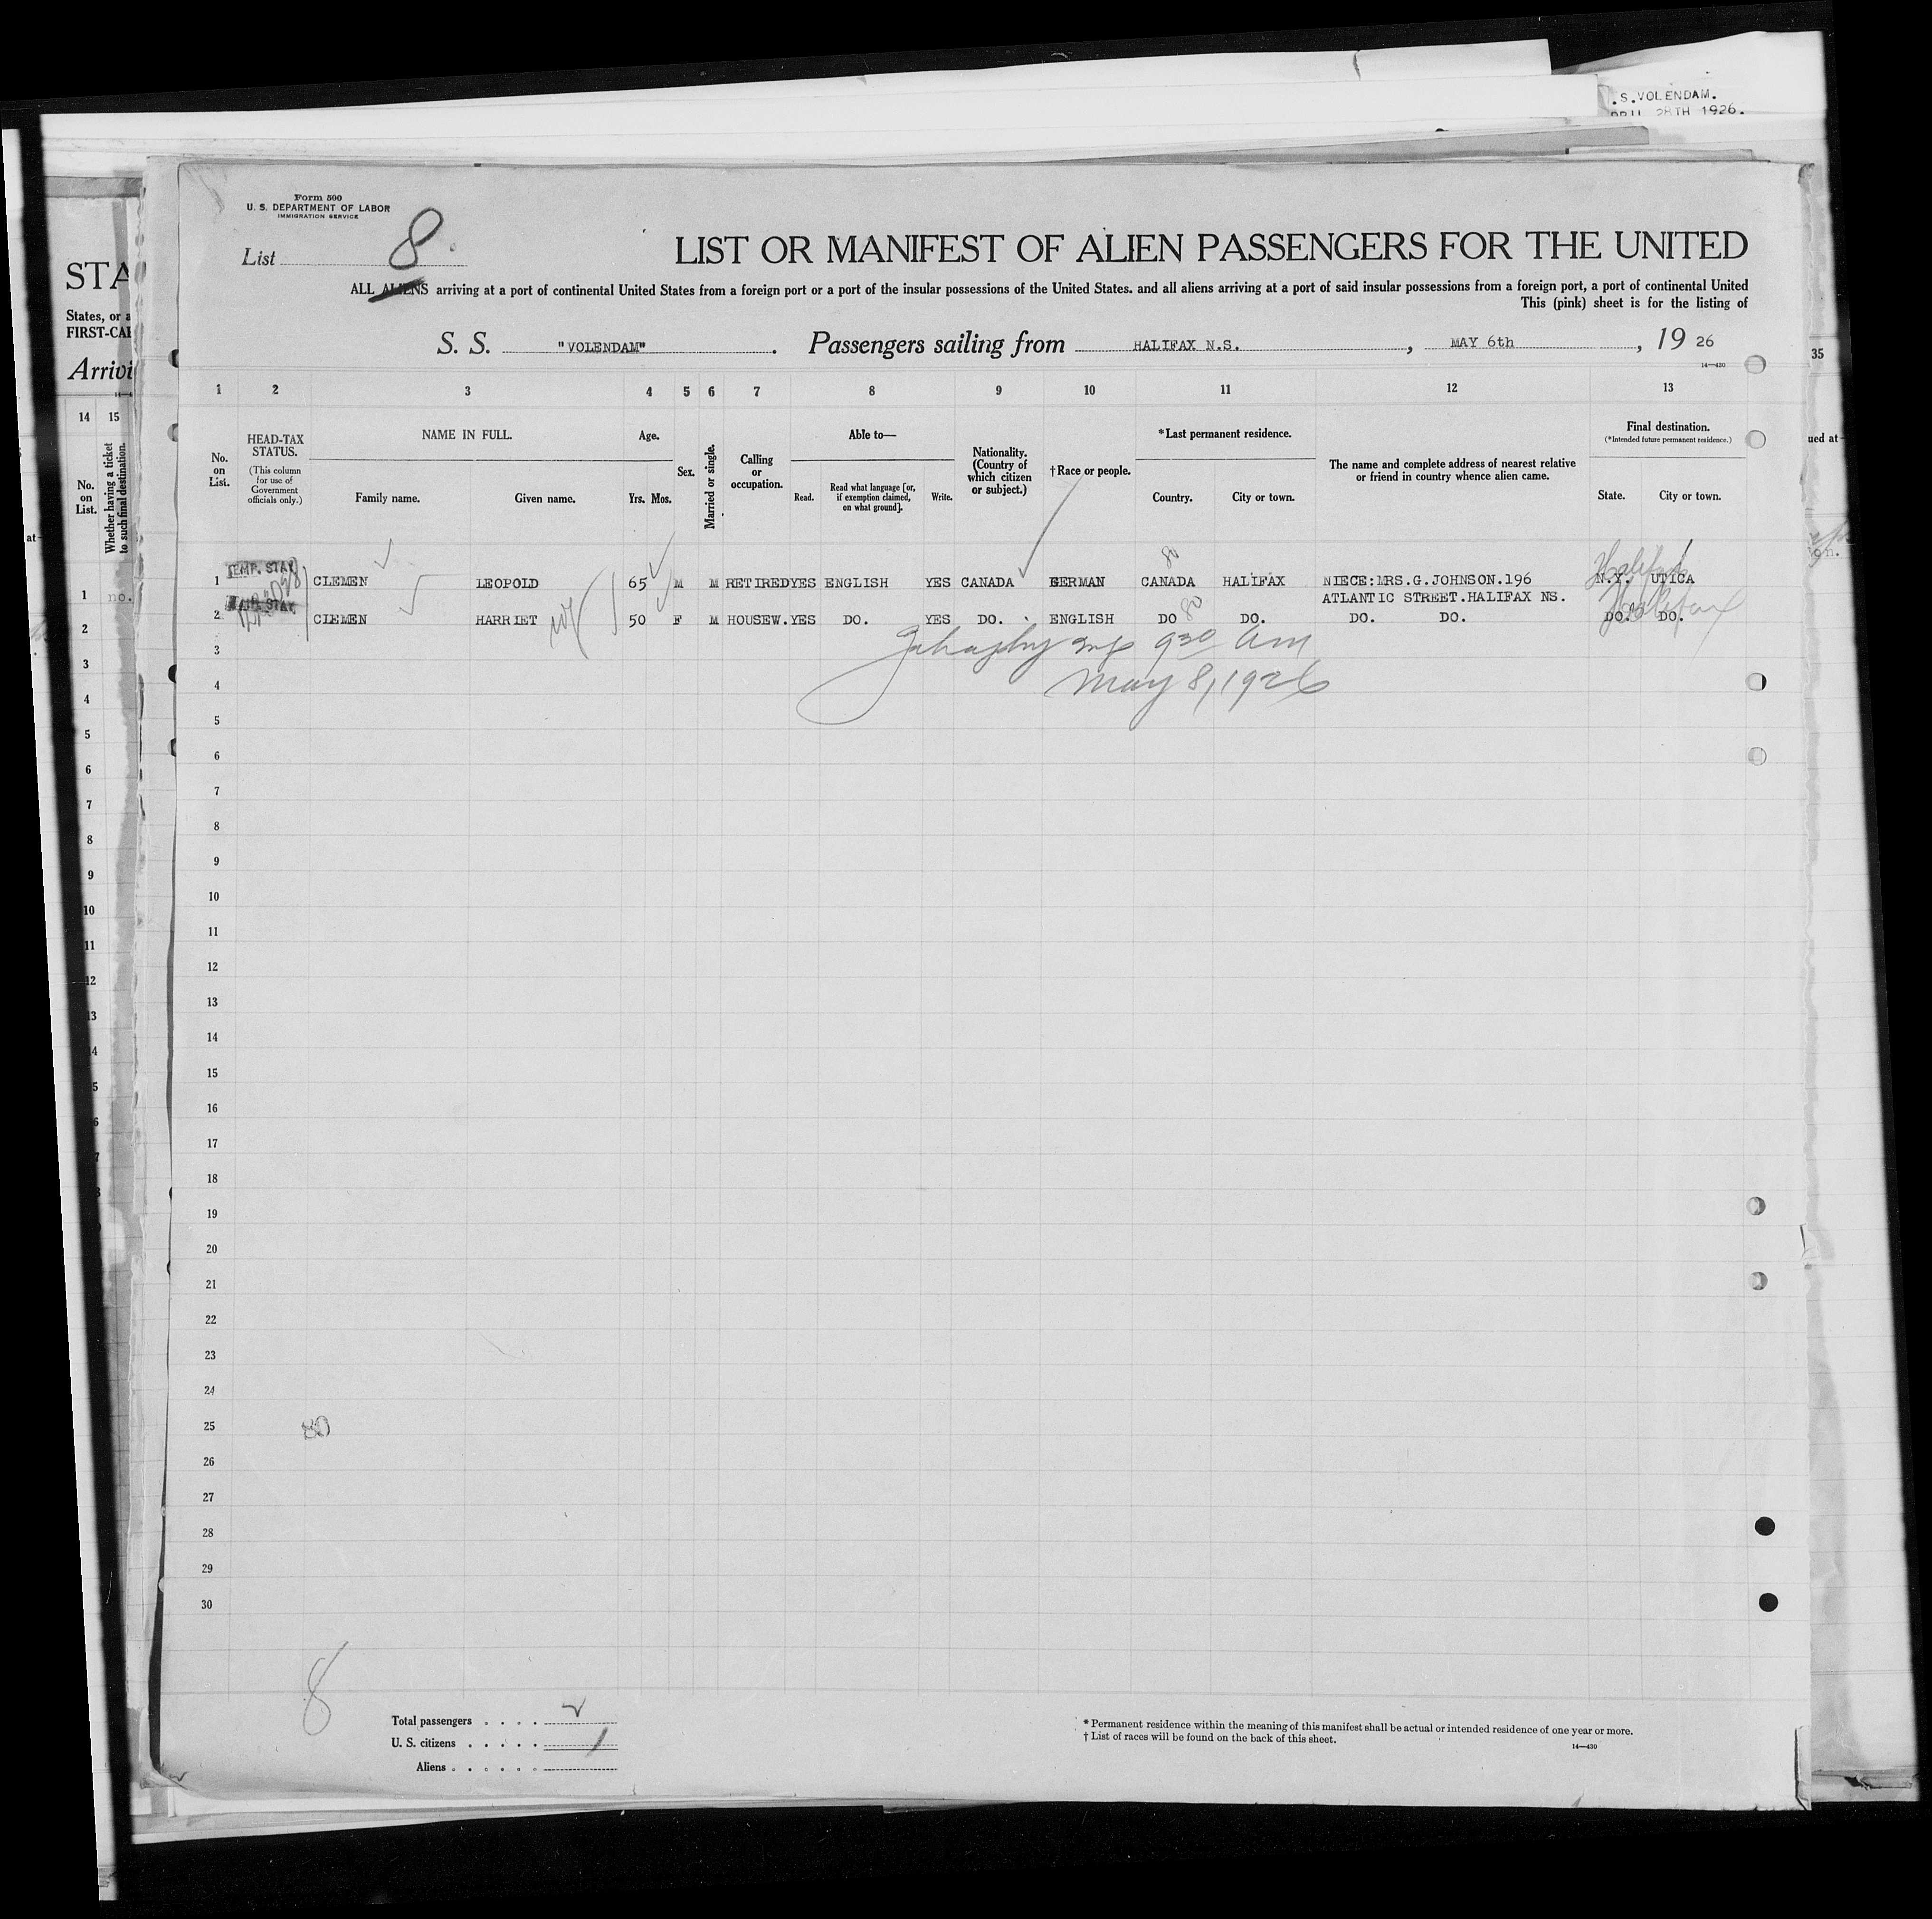 .S.VOLENDAM.
APRIL 28TH 1926.
Form 500
U. S. DEPARTMENT OF LABOR
IMMIGRATION SERVICE
List 8.
LIST OR MANIFEST OF ALIEN PASSENGERS FOR THE UNITED
ALL ALIENS arriving at a port of continental United States from a foreign port or a port of the insular possessions of the United States. and all aliens arriving at a port of said insular possessions from a foreign port, a port of continental United
This (pink) sheet is for the listing of
S. S. "VOLENDAM". Passengers sailing from HALIFAX N.S., MAY 6th, 19 26
14—430
1 2 3 4 5 6 7 8 9 10 11 12 13
No. on List.
HEAD-TAX STATUS.
(This column for use of Government officials only.)
NAME IN FULL.
Family name. Given name.
Age.
Yrs. Mos.
Sex.
Married or single.
Calling or occupation.
Able to—
Read. Read what language [or, if exemption claimed, on what ground]. Write.
Nationality. (Country of which citizen or subject.)
†Race or people.
*Last permanent residence.
Country. City or town.
The name and complete address of nearest relative or friend in country whence alien came.
Final destination.
(*Intended future permanent residence.)
State. City or town.
1 TEMP. STAY CLEMEN LEOPOLD 65 M M RETIRED YES ENGLISH YES CANADA GERMAN 80 CANADA HALIFAX NIECE:MRS.G.JOHNSON.196 N.Y. UTICA Halifax
ATLANTIC STREET.HALIFAX NS.
2 TEMP. STAY CLEMEN HARRIET wf 50 F M HOUSEW. YES DO. YES DO. ENGLISH DO 80 DO. DO. DO. DO. DO. Halifax
3
9 30 am
4
May 8, 1926
5
6
7
8
9
10
11
12
13
14
15
16
17
18
19
20
21
22
23
24
25 80
26
27
28
29
30
8
Total passengers . . . . 2
U. S. citizens . . . . . /
Aliens . . . . . .
* Permanent residence within the meaning of this manifest shall be actual or intended residence of one year or more.
† List of races will be found on the back of this sheet.
14—430
STA
States, or a
FIRST-CAB
Arrivi
14 15
No. on List.
Whether having a ticket to such final destination.
1 no.
2
3
4
5
6
7
8
9
10
11
12
13
14
35
ued at—